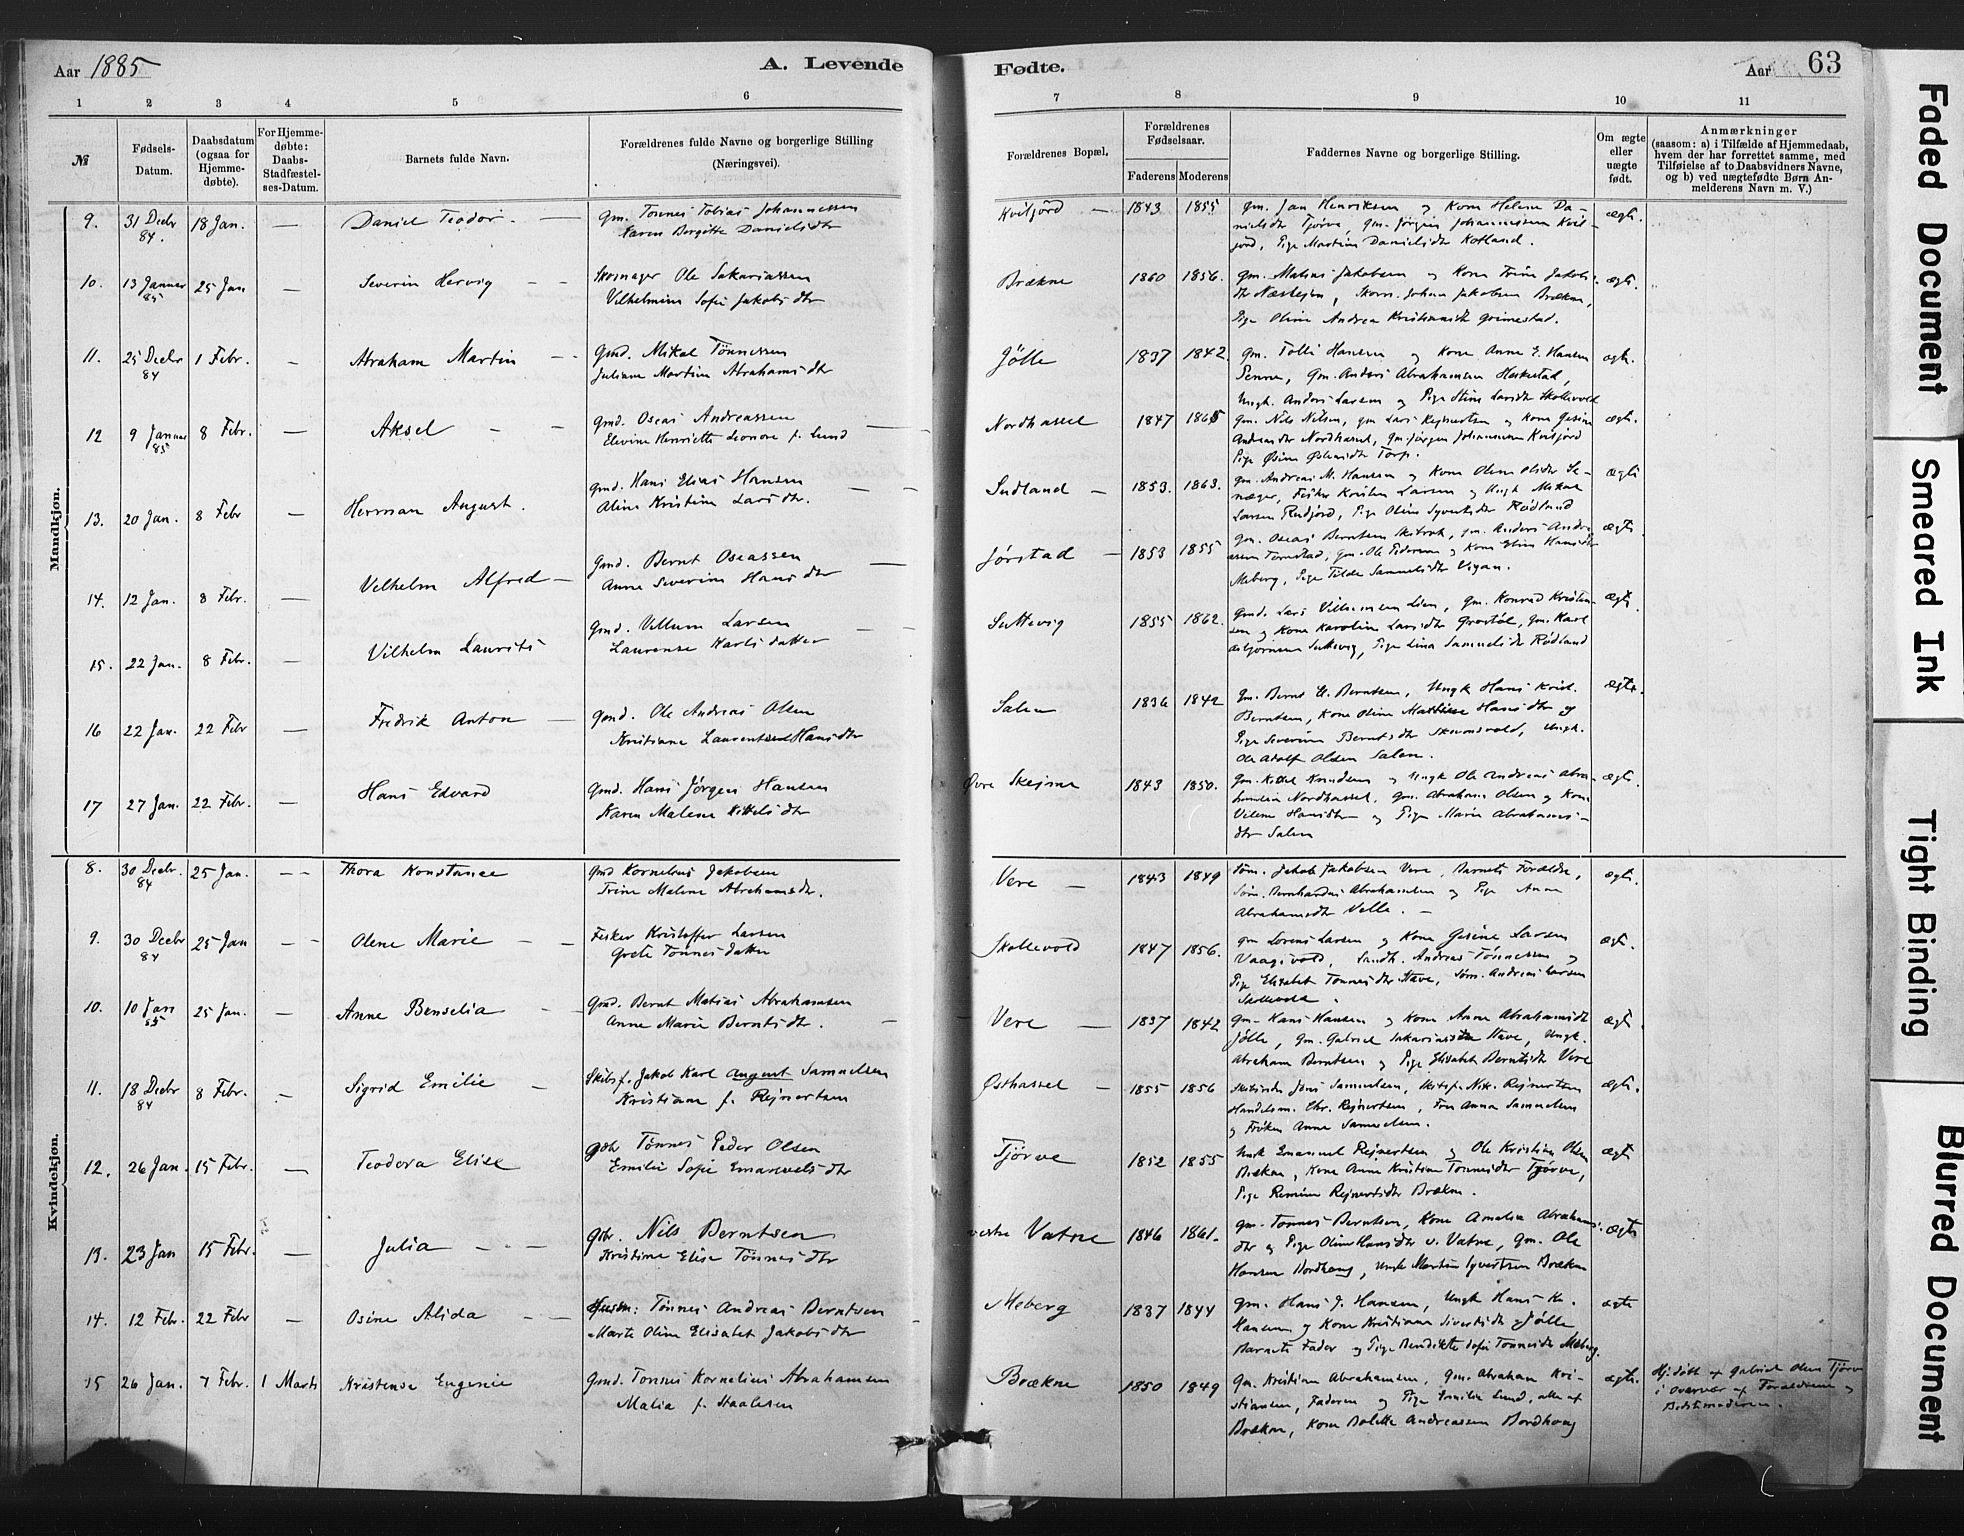 Aar 1885
A. Levende
Fødte.
Aar
63
1 2 3 4 5 6 7 8 9 10 11
№
Fødsels-
Datum.
Daabsdatum
(ogsaa for
Hjemme-
døbte).
For Hjemme-
døbte:
Daabs-
Stadfæstel-
ses-Datum.
Barnets fulde Navn.
Forældrenes fulde Navne og borgerlige Stilling
(Næringsvei).
Forældrenes Bopæl.
Forældrenes
Fødselsaar.
Faderens Moderens
Faddernes Navne og borgerlige Stilling.
Om ægte
eller
uægte
født.
Anmærkninger
(saasom: a) i Tilfælde af Hjemmedaab,
hvem der har forrettet samme, med
Tilføielse af to Daabsvidners Navne,
og b) ved uægtefødte Børn An-
melderens Navn m. V.)
Mandkjøn.
9. 31 Decbr 84. 18 Jan. — Daniel Teodor. —
Gm. Tønnes Tobias Johannessen
Karen Bergitte Danielsdtr
Kviljord — 1843 1855
gm. Jan Henriksen og Kone Helene Da-
nielsdtr Tjørve, gm. Jørgen Johannessen Kvil-
jord, Pige Martine Danielsdtr Kotland.
ægte.
10. 13 Januar 85 25 Jan — Severin Hervig — —
Skomager Ole Sakariassen
Vilhelmine Sofie Jakobsdtr
Brækne 1860 1856.
gm. Matias Jakobsen og Kone Trine Jakobs-
dtr, Skom. Johan Jakobsen Brækne,
Pige Oline Andrea Grimestad.
ægte.
11. 25 Decbr 84 1 Febr. — Abraham Martin — —
Gmd. Mikal Tønnessen
Juliane Martine Abrahamsdtr
Jølle 1837 1842
gm. Tolli Hansen og Kone Anne E. Hansen
Penne, Gm. Anders Abrahamsen Heskestad,
Ungk. Anders Larsen og Pige Stine Larsdtr Skollevold
ægte.
12 9 Januar 85 8 Febr. — Aksel — —
Gmd. Oscar Andreassen
Elevine Henriette Leonore f. Lund
Nordhassel 1847 1865
Gm. Nils Nilsen, gm Lars Rejnertsen og Kone Gesine
Andreasdtr Nordhassel, Gm. Jørgen Johannessen Kviljord
Pige Torp.
ægte.
13. 20 Jan. 8 Febr — Herman August.
gmd. Hans Elias Hansen
Aline Kristine Larsdtr.
Sudland — 1853. 1863.
gm. Andreas M. Hansen og Kone Olene Olsdtr
Fisker Kristen Larsen og Ungk Mikal
Larsen Rudjord, Pige Oline Syvertsdtr Rødland
ægte
14. 12 Jan. 8 Febr. — Vilhelm Alfred —
Gmd. Bernt Oseassen
Anne Severine Hansdtr
Jørstad — 1853 1855
gm. Oseas Berntsen, gm. Anders Andre-
assen, gm. Ole Pedersen og Kone Eline Hansdtr
Meberg, Pige Tilde Samuelsdtr Vigan.
ægte.
15. 22 Jan. 8 Febr. — Vilhelm Laurits
Gmd. Villum Larsen
Laurense Karlsdatter
Suttevig 1855 1862.
Gmd. Lars Villumsen Lien, Gm. Konrad Kristen-
sen og Kone Karoline Larsdtr Grostøl, Gm. Karl
Asbjørnsen Suttevig, Pige Lina Samuelsdtr Rødland
ægte.
16 22 Jan. 22 Febr — Fredrik Anton —
Gmd. Ole Andreas Olsen
Kristiane Laurentse Hansdtr
Salen 1836 1842
Gm. Bernt E. Berntsen, Ungk Hans Krist.
Berntsen, Kone Oline Martine Hansdtr og
Pige Severine Berntsdtr, Ungk.
Ole Adolf Olsen Salen.
ægte.
17 27 Jan. 22 Febr. — Hans Edvard
Gmd. Hans Jørgen Hansen
Karen Malene Kittelsdtr
Øvre Skejsne 1843 1850.
Gm. Kittel Knudsen og Ungk Ole Andreas Abra-
hamsen Nordhassel, Gm. Abraham Olsen og Kone
Velene Hansdtr og Pige Marie Abrahams-
dtr Salen
ægte.
Kvindekjøn.
8. 30 Decbr. 84 25 Jan. — Thora Konstance
Gmd Kornelius Jakobsen
Trine Malene Abrahamsdtr.
Vere — 1843 1849
Søm. Jakob Jakobsen Vere, Barnets Forældre,
Søm. Bernhardus Abrahamsen og Pige Anne
Abrahamsdtr Velle. —
ægte.
9. 30 Decbr 84 25 Jan — Olene Marie — —
Fisker Kristoffer Larsen
Grete Tønnesdatter
Skollevold 1847 1856.
gm Lorens Larsen og Kone Gesine Larsen
Vaagsvold, Andreas Tønnessen og
Pige Elisabet Tønnesdtr Stave, Søm. Andreas Larsen
Skollevold.
ægte.
10. 10 Jan 85 25 Jan. — Anne Benselia — —
Gmd. Bernt Matias Abrahamsen
Anne Marie Berntsdtr.
Vere — 1837 1842
gm. Hans Hansen og Kone Anne Abrahamsdtr
Jølle, Gm. Gabriel Sakariassen Stave, Ungk.
Abraham Berntsen og Pige Elisabet Berntsdtr Vere
ægte.
11. 18 Decbr 84 8 Febr. — Sigrid Emilie —
Skibsf. Jakob Karl August Samuelsen
Kristiane f. Rejnertsen
Østhassel — 1855 1856
Jens Samuelsen, Skibsf. Nik. Rejnertsen
Handelsm. Chr. Rejnertsen, Fru Anna Samuelsen
og Frøken Anne Samuelsen.
ægte.
12. 26 Jan. 15 Febr. — Teodora Elise
Gbr Tønnes Peder Olsen
Emilie Sofie Emanuelsdtr
Tjørve 1852 1855
Ungk Emanuel Rejnertsen og Ole Kristian Olsen
Brækne, Kone Anne Kristine Tønnesdtr Tjørve,
Pige Remine Rejnertsdtr Brækne.
ægte
13. 23 Jan 15 Febr. — Julia — —
Gbr. Nils Berntsen
Kristine Elise Tønnesdtr
vestre Vatne 1846 1861.
gm. Tønnes Berntsen, Kone Amalia Abrahams-
dtr og Pige Oline Hansdtr v. Vatne, Gm. Ole
Hansen Nordhaug, Ungk Martin Syvertsen Brækne
ægte
14. 12 Febr. 22 Febr — Osine Alida — —
Husm: Tønnes Andreas Berntsen
Marte Oline Elisabet Jakobsdtr
Meberg 1837 1844
gm. Hans J. Hansen, Ungk Hans Kr.
Hansen og Kone Kristiane Sivertsdtr Jølle
Barnets Fader og Pige Bendikte Sofie Tønnesdtr Meberg.
ægte
15 26 Jan. 7 Febr. 1 Marts Kristense Eugenie
Gmd. Tønnes Kornelius Abrahamsen
Malia f. Staalesen
Brækne 1850 1849
Gm. Kristian Abrahamsen, Gm. Abraham Kri-
stiansen, Faderen og Pige Emilie Lund, alle af
Brækne, Kone Bolette Andreassen Nordhaug
ægte.
Hj.døbt af Gabriel Olsen Tjørve
i Overvær af Forældrene og
Bedstemoderen.
Faded Document
Smeared Ink
Tight Binding
Blurred Document